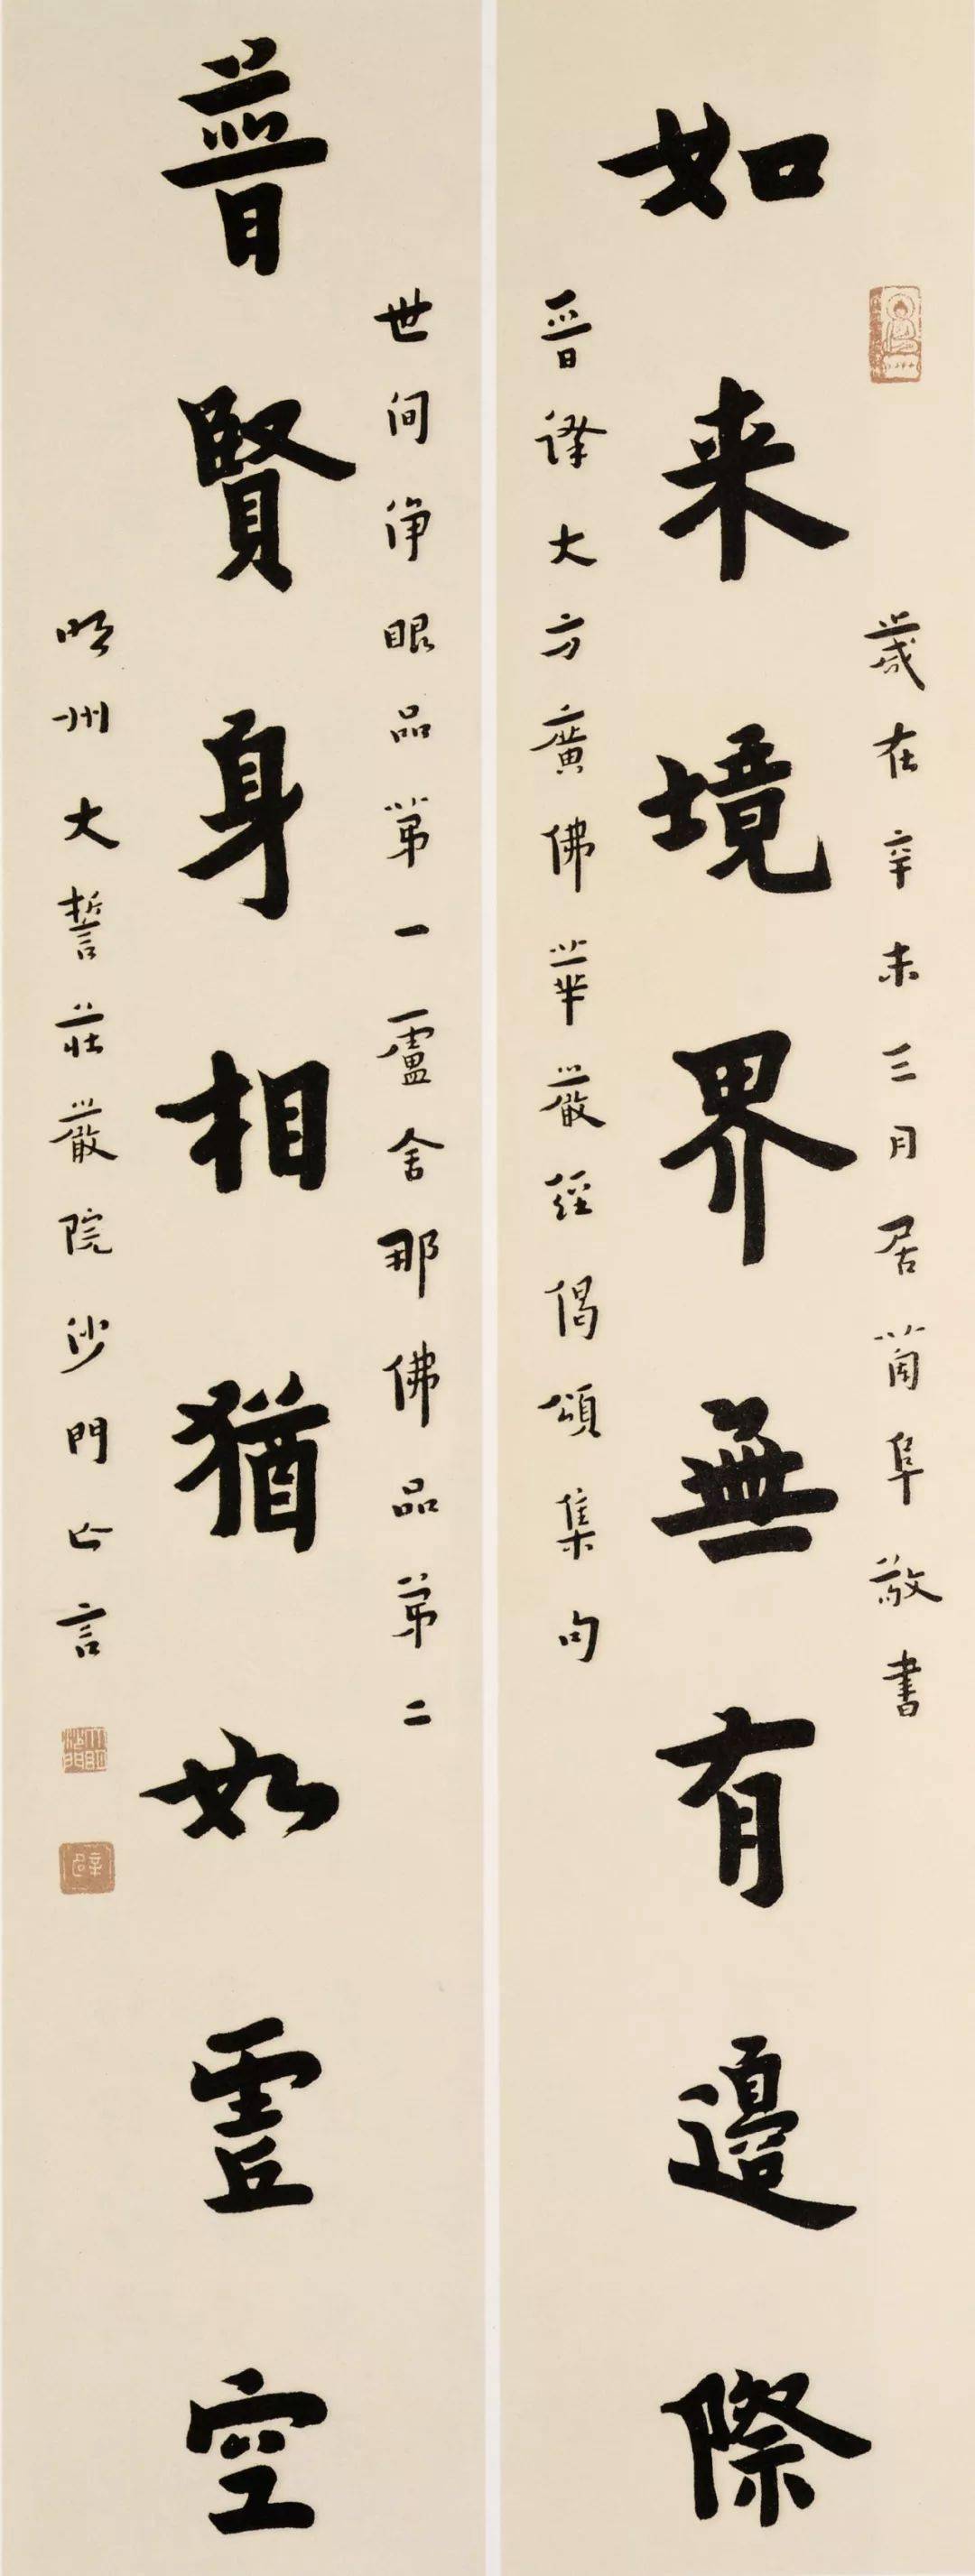 歲在辛未三月居蘭阜敬書
如来境界無有邊際
晉譯大方廣佛華嚴經偈頌集句
世间淨眼品第一盧舍那佛品第二
普賢身相猶如虚空
明州大誓莊嚴院沙門亡言